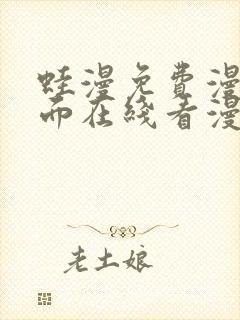 蛙漫免费漫
而在线看漫
老土娘